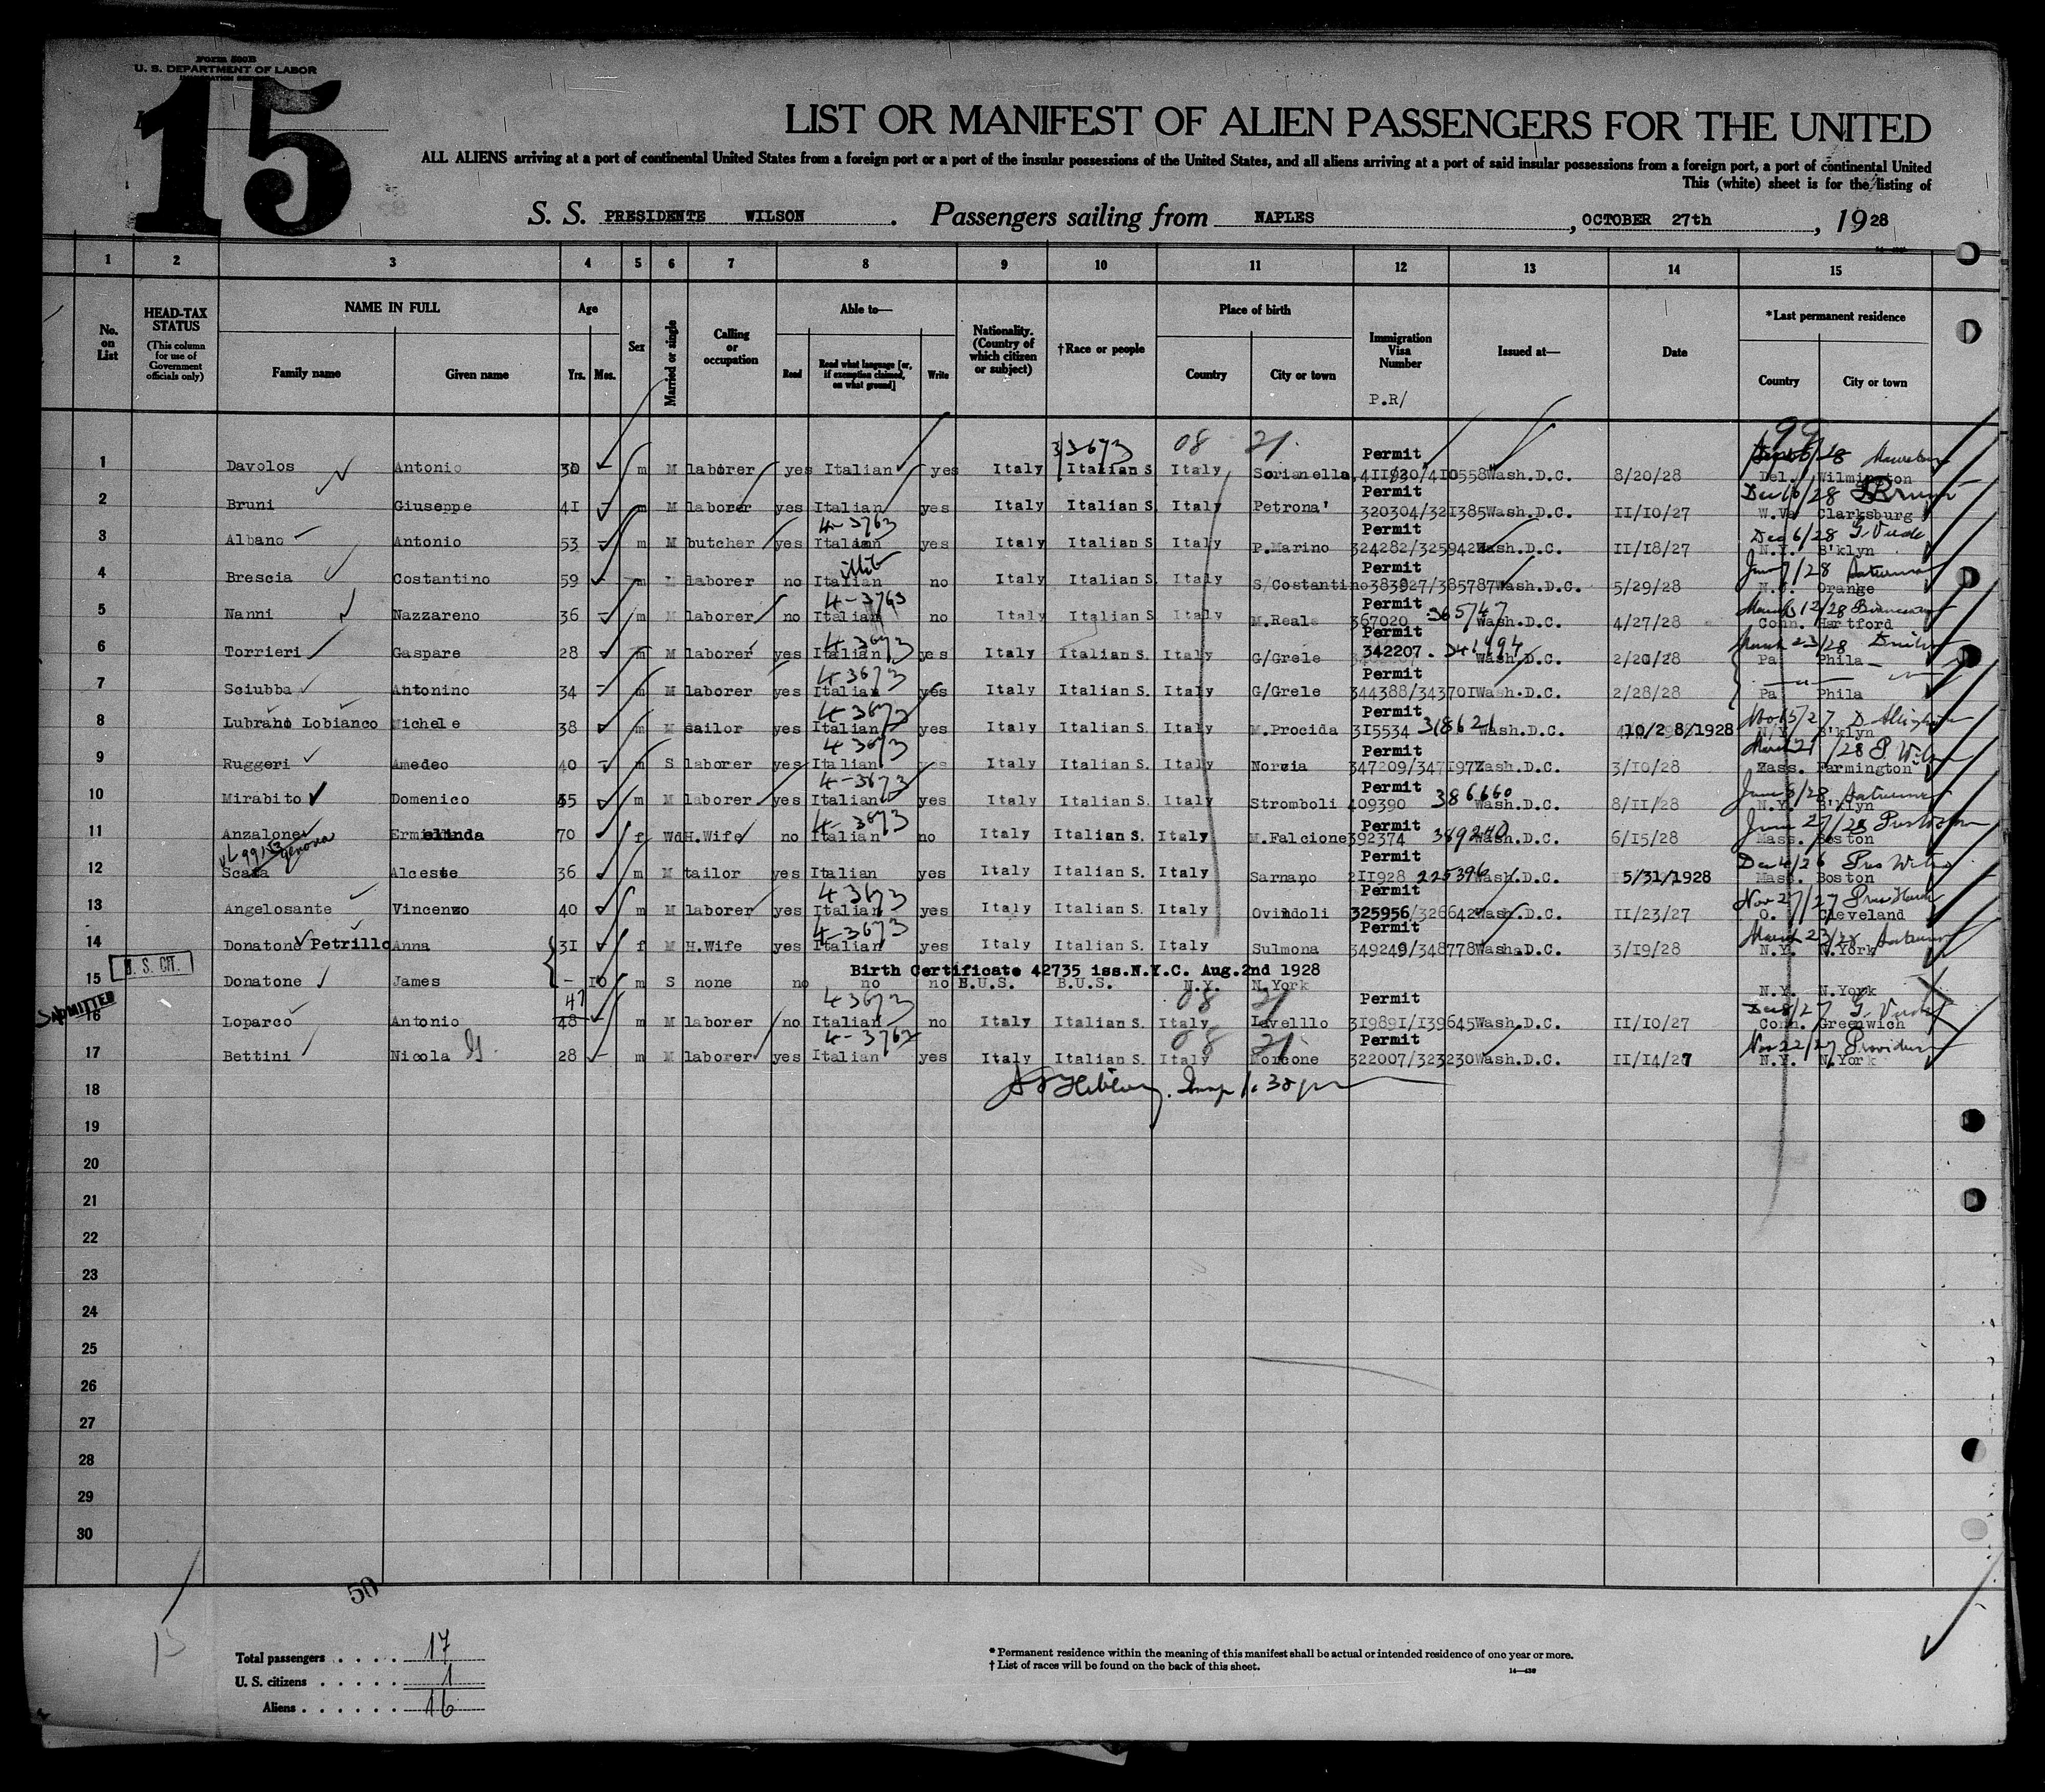 Form 500B
U. S. DEPARTMENT OF LABOR
IMMIGRATION SERVICE
15
LIST OR MANIFEST OF ALIEN PASSENGERS FOR THE UNITED
ALL ALIENS arriving at a port of continental United States from a foreign port or a port of the insular possessions of the United States, and all aliens arriving at a port of said insular possessions from a foreign port, a port of continental United
This (white) sheet is for the listing of
S. S. PRESIDENTE WILSON. Passengers sailing from NAPLES, OCTOBER 27th, 1928
1 2 3 4 5 6 7 8 9 10 11 12 13 14 15
No. on List HEAD-TAX STATUS (This column for use of Government officials only) NAME IN FULL Family name Given name Age Yrs. Mos. Sex Married or single Calling or occupation Able to— Read Read what language [or, if exemption claimed, on what ground] Write Nationality. (Country of which citizen or subject) †Race or people Place of birth Country City or town Immigration Visa Number P.R/ Issued at— Date *Last permanent residence Country City or town
33673 08 21 99
1 Davolos Antonio 30 m M laborer yes Italian yes Italy Italian S Italy Sorianella Permit 411930/410558 Wash.D.C. 8/20/28 Del. Wilmington
Dec 16/28
2 Bruni Giuseppe 41 M laborer yes Italian yes Italy Italian S Italy Petrona' Permit 320304/321385 Wash.D.C. 11/10/27 W.Va Clarksburg
4-3763 Dec 6/28 G. Verde
3 Albano Antonio 53 m M butcher yes Italian yes Italy Italian S Italy P.Marino Permit 324282/325942 Wash.D.C. 11/18/27 N.Y. B'klyn
illit
4 Brescia Costantino 59 m M laborer no Italian no Italy Italian S Italy S/Costantino Permit 383927/385787 Wash.D.C. 5/29/28 N.J. Orange
4-3763 March 12/28
5 Nanni Nazzareno 36 m M laborer no Italian no Italy Italian S Italy M.Reale Permit 367020 365747 Wash.D.C. 4/27/28 Conn. Hartford
4-3673 March 23/28
6 Torrieri Gaspare 28 m M laborer yes Italian yes Italy Italian S. Italy G/Grele Permit 342207. 341494 Wash.D.C. 2/20/28 Pa Phila
4-3673
7 Sciubba Antonino 34 m M laborer yes Italian yes Italy Italian S. Italy G/Grele Permit 344388/343701 Wash.D.C. 2/28/28 Pa Phila
4-3673 Nov 15/27
8 Lubrano Lobianco Michele 38 m M sailor yes Italian yes Italy Italian S. Italy M.Procida Permit 315534 318621 Wash.D.C. 10/28/1928 N.Y. B'klyn
4-3673 March 21/28 P. Wilson
9 Ruggeri Amedeo 40 m S laborer yes Italian yes Italy Italian S. Italy Norcia Permit 347209/347197 Wash.D.C. 3/10/28 Mass. Farmington
4-3673
10 Mirabito Domenico 45 m M laborer yes Italian yes Italy Italian S. Italy Stromboli Permit 409390 386660 Wash.D.C. 8/11/28 N.Y. B'klyn
4-3673 June 27/28
11 Anzalone Ermelinda 70 f Wd H.Wife no Italian no Italy Italian S. Italy M.Falcione Permit 392374 389240 Wash.D.C. 6/15/28 Mass. Boston
Genova Dec 4/26 Pres Wilson
12 Scafa Alceste 36 m M tailor yes Italian yes Italy Italian S. Italy Sarnano Permit 211928 225396 Wash.D.C. 5/31/1928 Mass. Boston
4-3673 Nov 27/27
13 Angelosante Vincenzo 40 m M laborer yes Italian yes Italy Italian S. Italy Ovindoli Permit 325956/326642 Wash.D.C. 11/23/27 O. Cleveland
4-3673 March 23/28
14 Donatone Petrillo Anna 31 f M H.Wife yes Italian yes Italy Italian S. Italy Sulmona 349249/348778 Wash.D.C. 3/19/28 N.Y. N.York
U. S. CIT. Birth Certificate 42735 iss.N.Y.C. Aug.2nd 1928
15 Donatone James - 10 m S none no no no B.U.S. B.U.S. N.Y. N.York N.Y. N.York
ADMITTED 47 4 3673 08 21 Dec 8/27 G. Verde
16 Loparco Antonio 48 m M laborer no Italian no Italy Italian S. Italy Lavelllo Permit 319891/139645 Wash.D.C. 11/10/27 Conn. Greenwich
4-3762 08 21 Nov 22/27 Providence
17 Bettini Nicola G. 28 m M laborer yes Italian yes Italy Italian S. Italy Morcone Permit 322007/323230 Wash.D.C. 11/14/27 N.Y. N.York
18 Insp 1.30 pm
19
20
21
22
23
24
25
26
27
28
29
30
50
Total passengers . . . . 17
U. S. citizens . . . . . 1
Aliens . . . . . . 16
* Permanent residence within the meaning of this manifest shall be actual or intended residence of one year or more.
† List of races will be found on the back of this sheet. 14—430